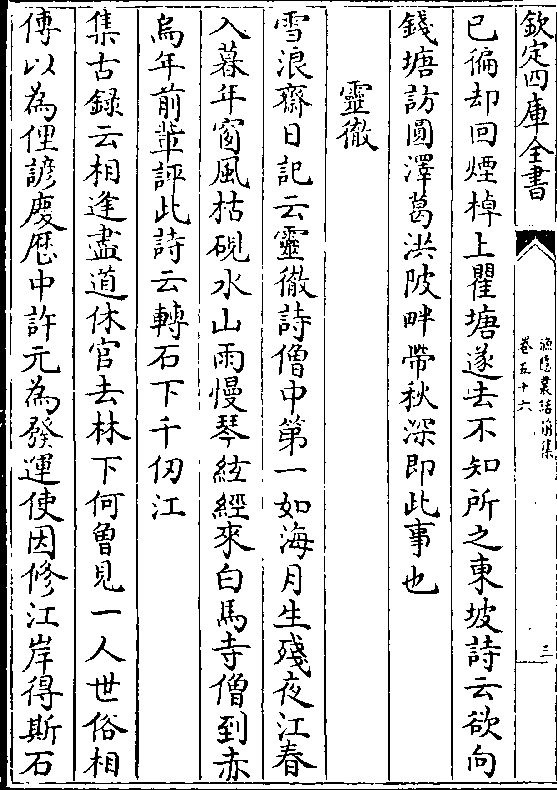 欽定四庫全書
漁隱叢話前集
卷五十六
三
已徧却回煙棹上瞿塘遂去不知所之東坡詩云欲向
錢塘訪圓澤葛洪陂畔帶秋深即此事也
靈徹
雪浪齋日記云靈徹詩僧中第一如海月生殘夜江春
入暮年窗風枯硯水山雨慢琴絃經來白馬寺僧到赤
烏年前輩評此詩云轉石下千仞江
集古録云相逢盡道休官去林下何曾見一人世俗相
傳以為俚諺慶厯中許元為發運使因修江岸得斯石